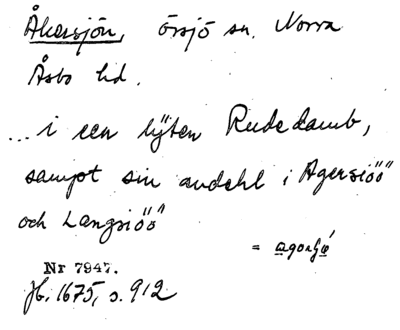 Åkersjön, Örsjö sn. Norra
Åsbo hd.
... i een lÿten Rudedamb,
sampt sin andehl i Agersiöö
och Langsiöö"
Nr 7947.
Jb. 1675, s. 912